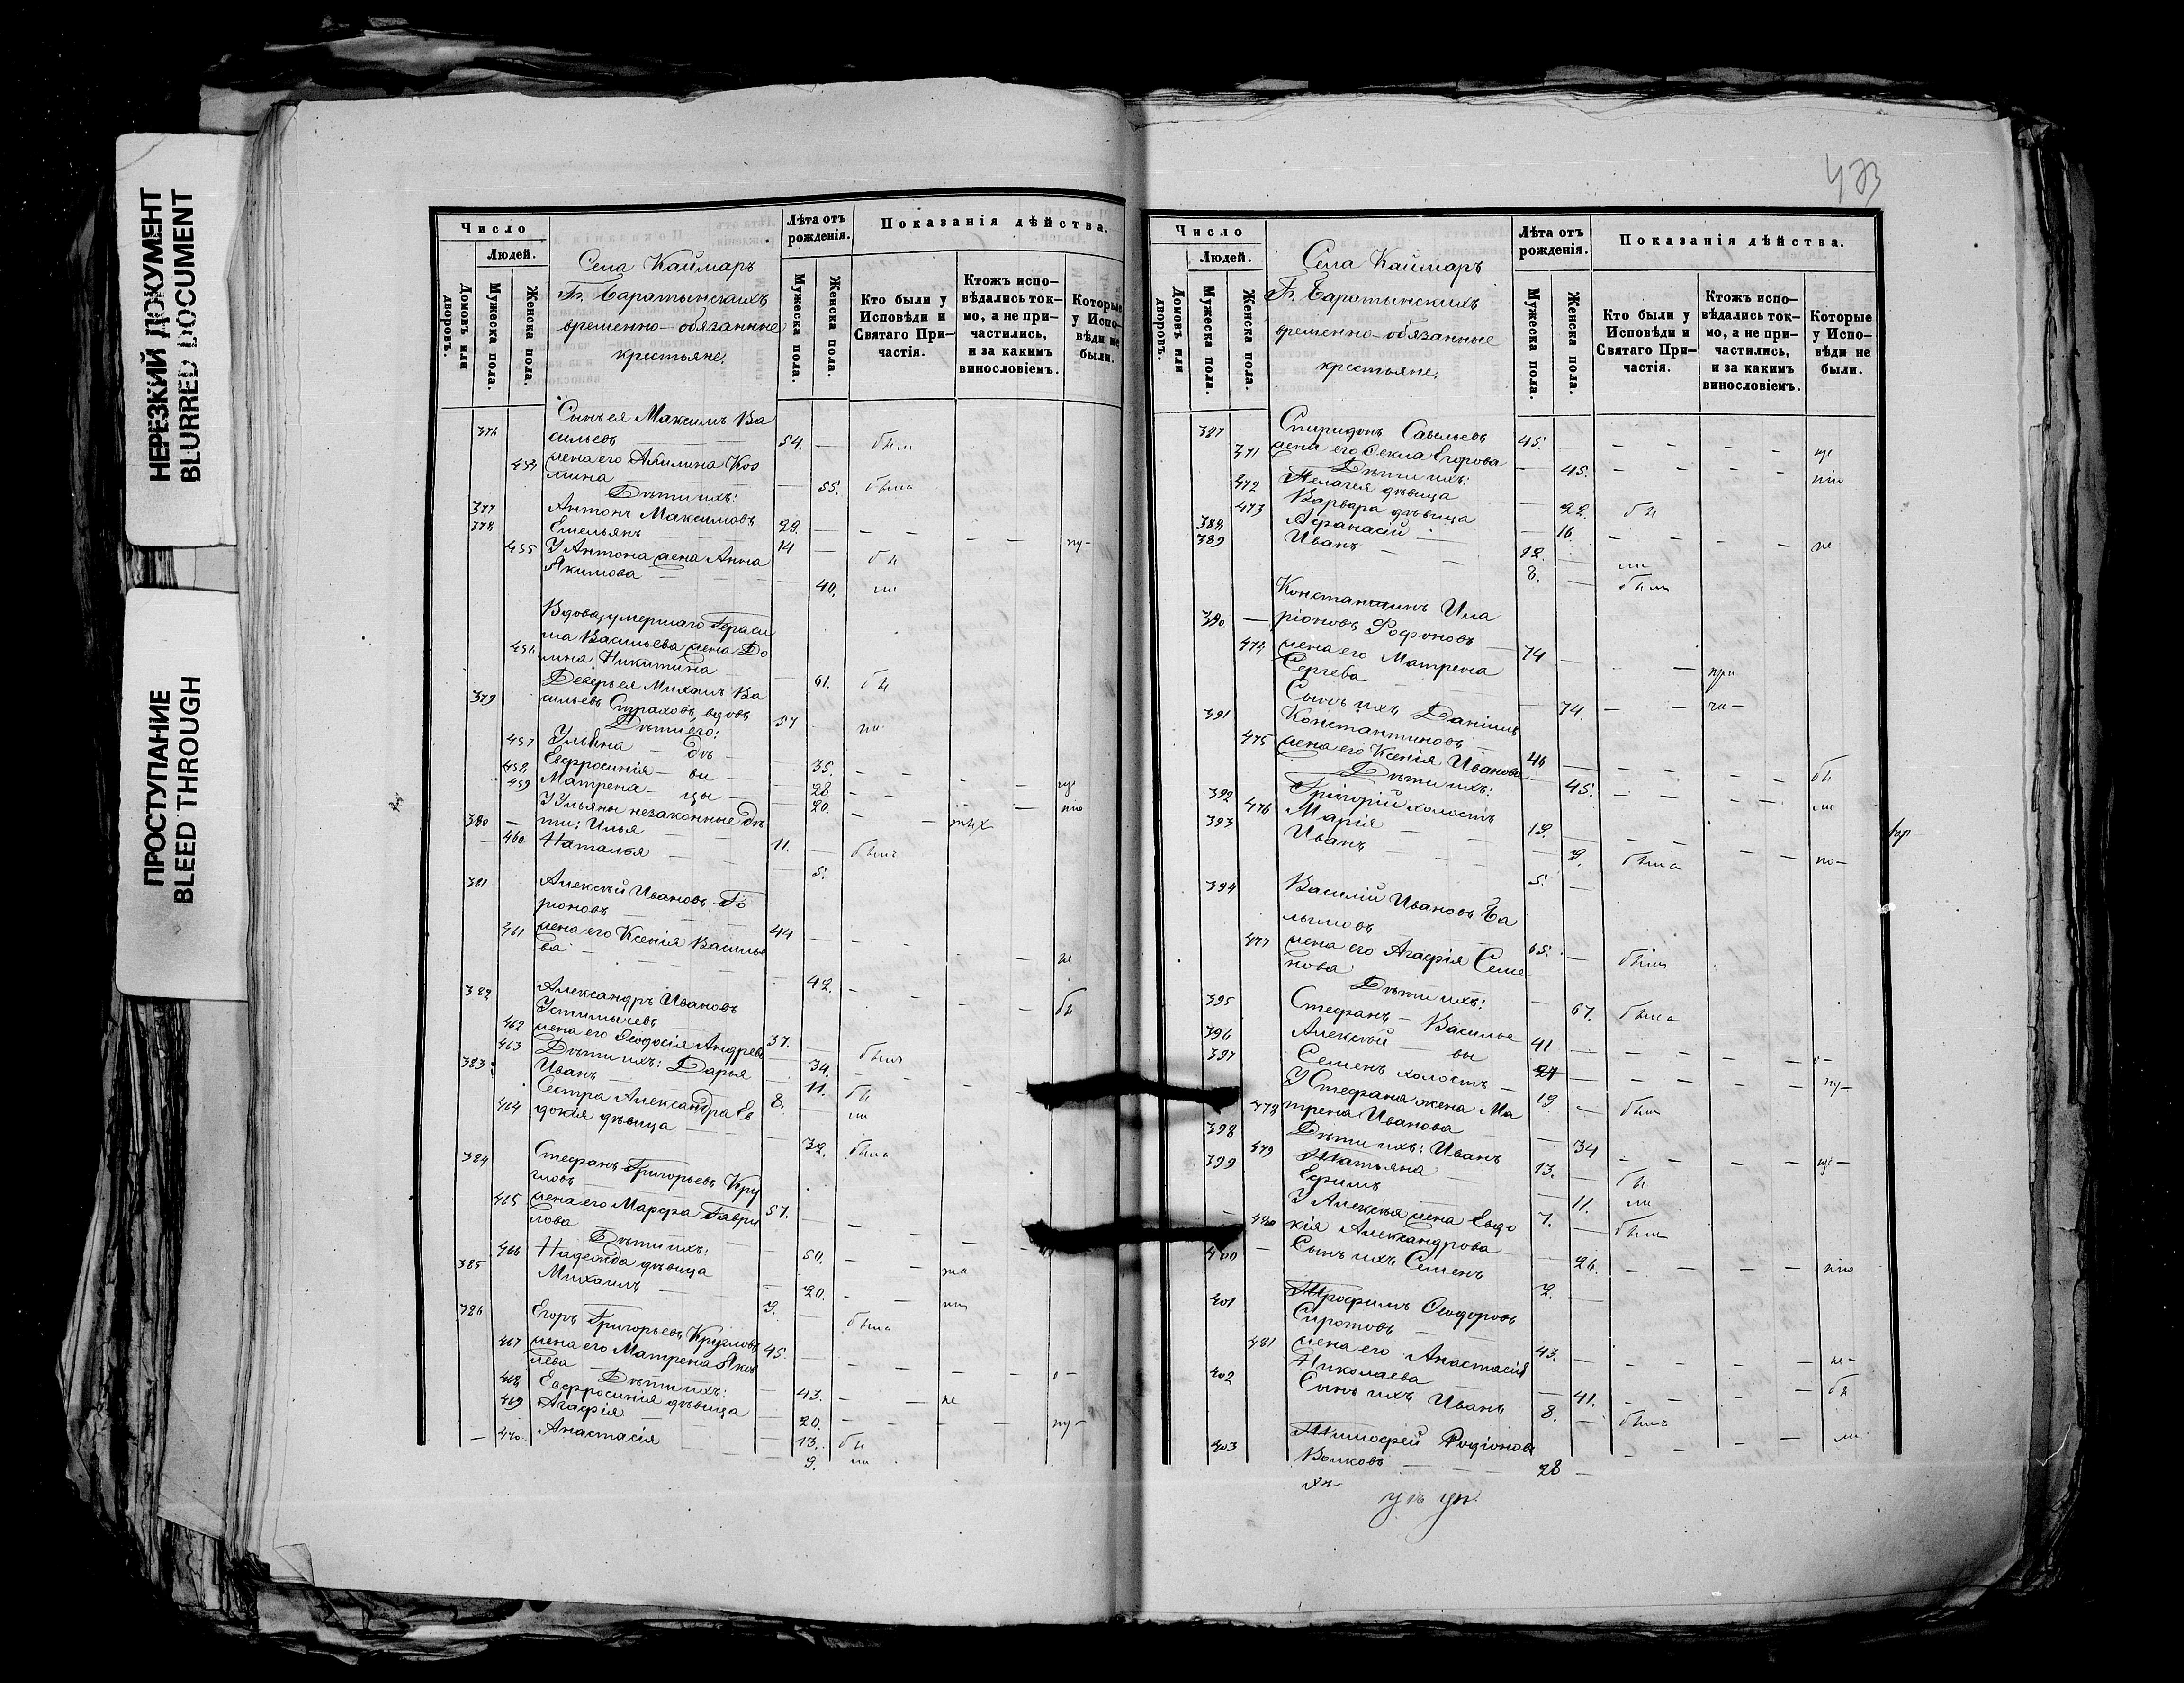 НЕРЕЗКИЙ ДОКУМЕНТ
BLURRED DOCUMENT
ПРОСТУПАНИЕ
BLEED THROUGH
Число
Людей.
Домовъ или дворовъ.
Мужеска пола.
Женска пола.
Села Каймаръ
Гг. Баратынскихъ
временно-обязанные
крестьяне.
Лѣта отъ рожденія.
Мужеска пола.
Женска пола.
Показанія дѣйства.
Кто были у Исповѣди и Святаго Причастія.
Ктожъ исповѣдались токмо, а не причастились, и за какимъ винословіемъ.
Которые у Исповѣди не были.
376 Сынъ ея Максимъ Ва
сильевъ 54. были
454 жена его Акилина Коз
мина 55. была
Дѣти ихъ:
377 Антонъ Максимовъ 29.
378 Емельянъ 14
455 У Антона жена Анна
Якимова 40.
Вдова, умершаго Гераси
ма Васильева жена До
456 мна Никитина 61. бы
Деверь ея Михаилъ Ва
379 сильевъ Страховъ, вдовъ 57 ли
Дѣти его:
457 Ульяна дѣ 35.
458 Евфросинія ви 28.
459 Матрена цы 20.
У Ульяны незаконные дѣ
380 ти: Илья 11.
460 Наталья 5.
381 Алексѣй Ивановъ Го
ріоновъ 44
461 жена его Ксенія Василье
ва 42.
382 Александръ Ивановъ
Устимычевъ 37.
462 жена его Ѳеодосія Андрева 34.
463 Дѣти ихъ: Дарья 11. бы
383 Иванъ 8. ли
Сестра Александра Ев
464 докія дѣвица 32. была
384 Стефанъ Григорьевъ Кру
гловъ 57.
465 жена его Марфа Гаври
лова 50.
Дѣти ихъ:
466 Надежда дѣвица 20.
385 Михаилъ 9.
386 Егоръ Григорьевъ Кругловъ 45.
467 жена его Матрена Яков
лева 43.
Дѣти ихъ:
468 Евфросинія дѣвица 20.
469 Агафія 13. бы
470 Анастасія 9. ли
473
Число
Людей.
Домовъ или дворовъ.
Мужеска пола.
Женска пола.
Села Каймаръ
Гг. Баратынскихъ
временно-обязанные
крестьяне.
Лѣта отъ рожденія.
Мужеска пола.
Женска пола.
Показанія дѣйства.
Кто были у Исповѣди и Святаго Причастія.
Ктожъ исповѣдались токмо, а не причастились, и за какимъ винословіемъ.
Которые у Исповѣди не были.
387 Спиридонъ Савельевъ 45.
471 жена его Ѳекла Егорова 45.
Дѣти ихъ:
472 Пелагея дѣвица 22. бы
473 Варвара дѣвица 16
388 Афанасій 12. ли
389 Иванъ 8. были
Константинъ Ила
390. ріоновъ Фофоновъ 74
474 жена его Матрена
Сергева 74.
Сынъ ихъ Даніилъ
391 Константиновъ 46
475 жена его Ксенія Иванова 45.
Дѣти ихъ:
392 Григорій холостъ 19.
476 Марія 9. была
393 Иванъ 5.
394 Василій Ивановъ Ба
лымовъ 65.
477 жена его Агафія Семе
нова 67. была
Дѣти ихъ:
395 Стефанъ Василье 41
396 Алексѣй вы
397 Семенъ холостъ 19
У Стефана жена Ма
478 трена Иванова 34
398 Дѣти ихъ: Иванъ 13. бы
479 Татьяна 11. ли
399 Ефимъ 7. были
У Алексѣя жена Евдо
480 кія Александрова 26.
400 Сынъ ихъ Семенъ 2.
401 Трофимъ Ѳеодоровъ
Сиротовъ 43.
481 жена его Анастасія
Николаева 41.
402 Сынъ ихъ Иванъ 8. былъ
403 Тимофей Родіоновъ
Волковъ 28